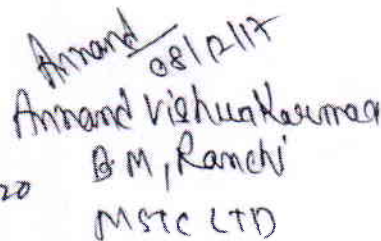 Annand
08/12/17
Annand Vishwakarmaa
BM, Ranchi
20
MSTC LTD